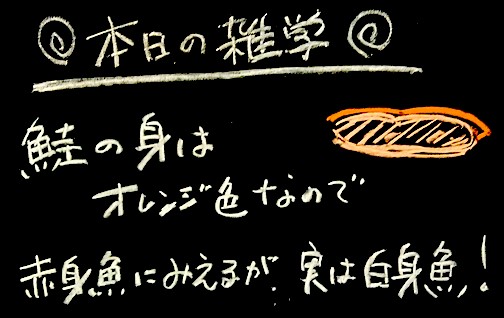 ＠本日の雑学＠
鮭の身は
オレンジ色なので
赤身魚にみえるが、実は白身魚!